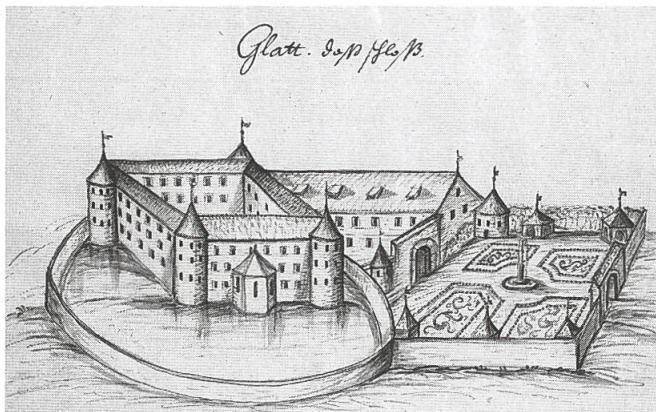 Glatt. daß schloß.